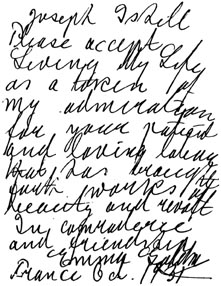 Joseph Ishill
Please accept
Living My Life
as a token of
my admiration
for your talent
and loving labour
that has brought
forth works of
beauty and revolt
In comraderie
and friendship
Emma Goldman
France Oct. 1931